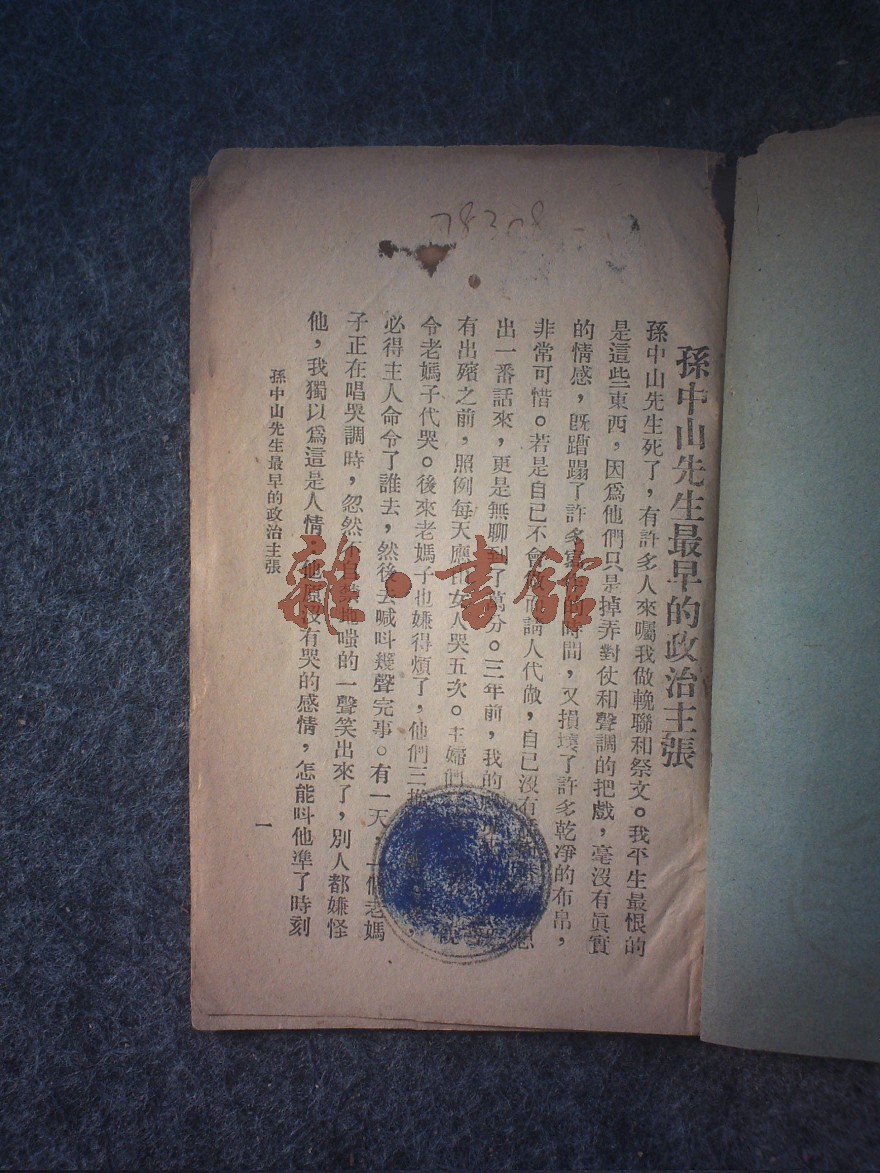 78308
孫中山先生最早的政治主張
孫中山先生死了，有許多人來囑我做輓聯和祭文。我平生最恨的
是這些東西，因爲他們只是掉弄對仗和聲調的把戲，毫沒有眞實
的情感，旣蹧蹋了許多時間，又損壞了許多乾凈的布帛，
非常可惜。若是自已不會做而請人代做，自已沒有
出一番話來，更是無聊到了萬分。三年前，我的
有出殯之前，照例每天應由女人哭五次。主婦們
令老媽子代哭。後來老媽子也嫌得煩了，他們三推
必得主人命令了誰去，然後去喊呌幾聲完事。有一天，一個老媽
子正在唱哭調時，忽然不自禁地嗤的一聲笑出來了，別人都嫌怪
他，我獨以爲這是人情，他原沒有哭的感情，怎能呌他準了時刻
孫中山先生最早的政治主張
一
雜·書館